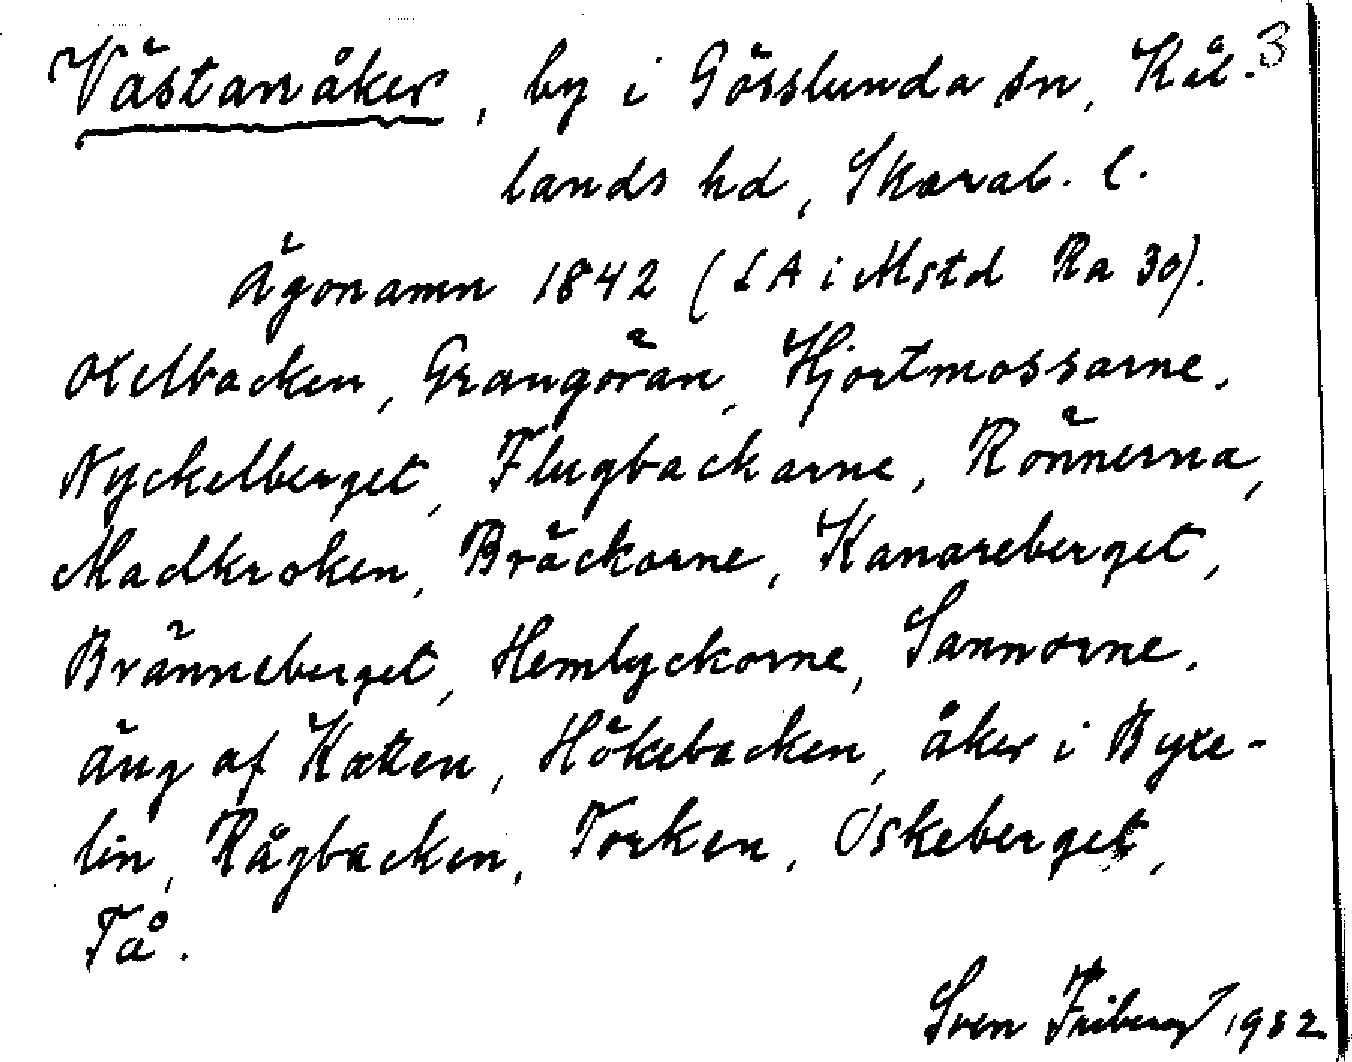 Västanåker, by i Gösslunda sn, Kål- 3
lands hd, Skarab. l.
Ägonamn 1842 (LA i Mstd Ra 30).
Oxelbacken, Grangöran, Hjortmossarne,
Nyckelberget, Flugbackarne, Rönnerna,
Madkroken, Bräckorne, Kanareberget,
Bränneberget, Hemlyckorne, Sannorne,
äng af Katten, Hökebacken, åker i Byxe-
lin, Rågbacken, Torken, Oskeberget,
Tå.
Sven Friberg 1932